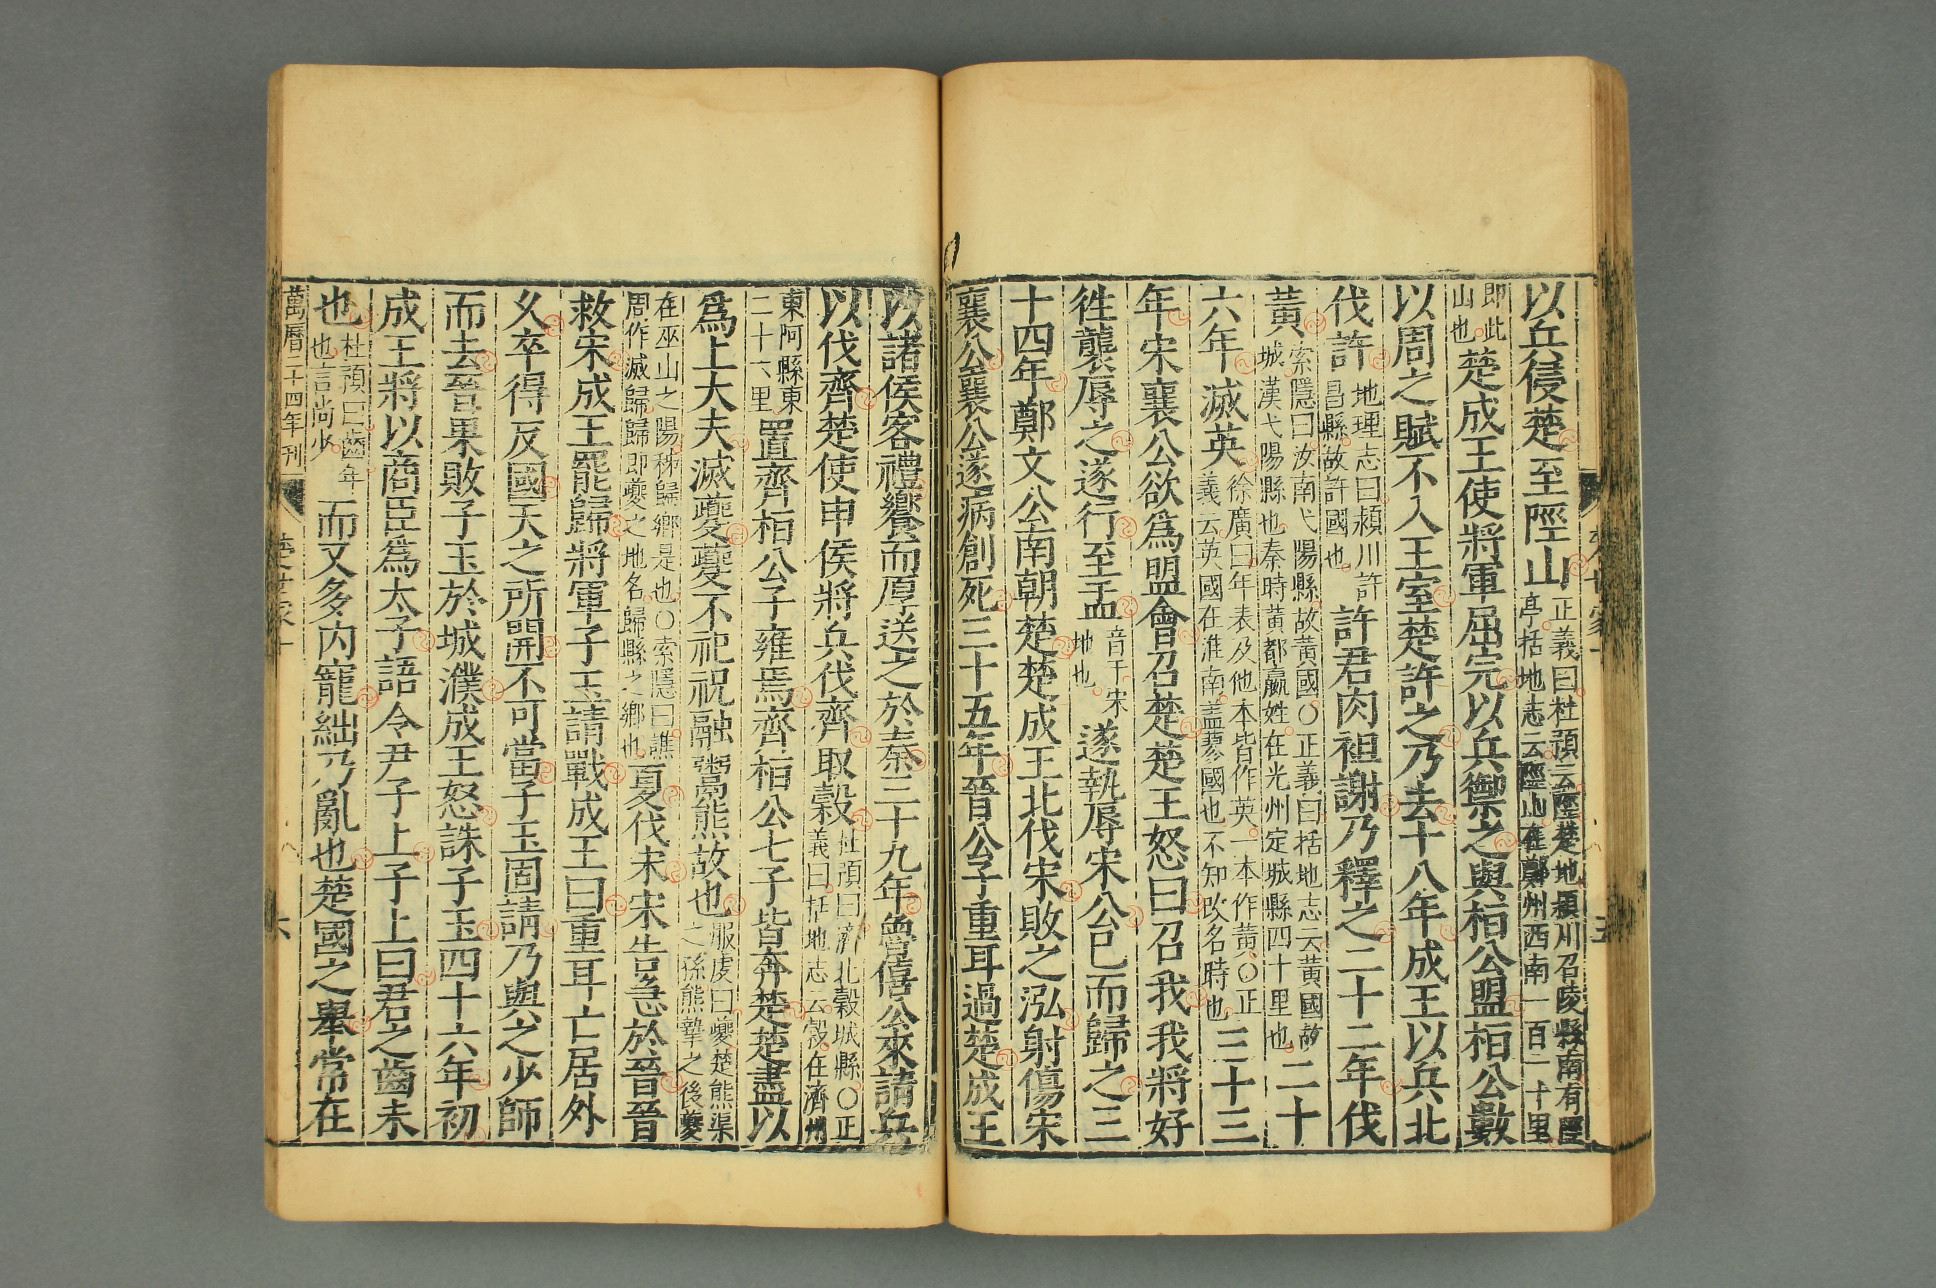 以兵侵楚至陘山正義曰杜預云陘楚地潁川召陵縣南有陘亭括地志云陘山在鄭州西南一百一十里
即此山也楚成王使將軍屈完以兵禦之與桓公盟桓公數
以周之賦不入王室楚許之乃去十八年成王以兵北
伐許地理志曰潁川許昌縣故許國也許君肉袒謝乃釋之二十二年伐
黃索隱曰汝南弋陽縣故黃國〇正義曰括地志云黃國故城漢弋陽縣也秦時黃都嬴姓在光州定城縣四十里也二十
六年滅英徐廣曰年表及他本皆作英一本作黃〇正義云英國在淮南蓋蓼國也不知改名時也三十三
年宋襄公欲爲盟會召楚楚王怒曰召我我將好
徃襲辱之遂行至盂音于宋地也遂執辱宋公已而歸之三
十四年鄭文公南朝楚楚成王北伐宋敗之泓射傷宋
襄公襄公遂病創死三十五年晉公子重耳過楚成王
以諸侯客禮饗而厚送之於秦三十九年魯僖公來請兵
以伐齊楚使申侯將兵伐齊取穀杜預曰濟北穀城縣〇正義曰括地志云穀在濟州
東阿縣東二十六里置齊桓公子雍焉齊桓公七子皆奔楚楚盡以
爲上大夫滅夔夔不祀祝融鬻熊故也服虔曰夔楚熊渠之孫熊摯之後夔
在巫山之陽秭歸鄉是也〇索隱曰譙周作滅歸歸即夔之地名歸縣之鄉也夏伐宋宋告急於晉晉
救宋成王罷歸將軍子玉請戰成王曰重耳亡居外
久卒得反國天之所開不可當子玉固請乃與之少師
而去晉果敗子玉於城濮成王怒誅子玉四十六年初
成王將以商臣爲太子語令尹子上子上曰君之齒未
也杜預曰齒年也言尚少而又多內寵絀乃亂也楚國之舉常在
萬曆二十四年刊 楚世家十 六